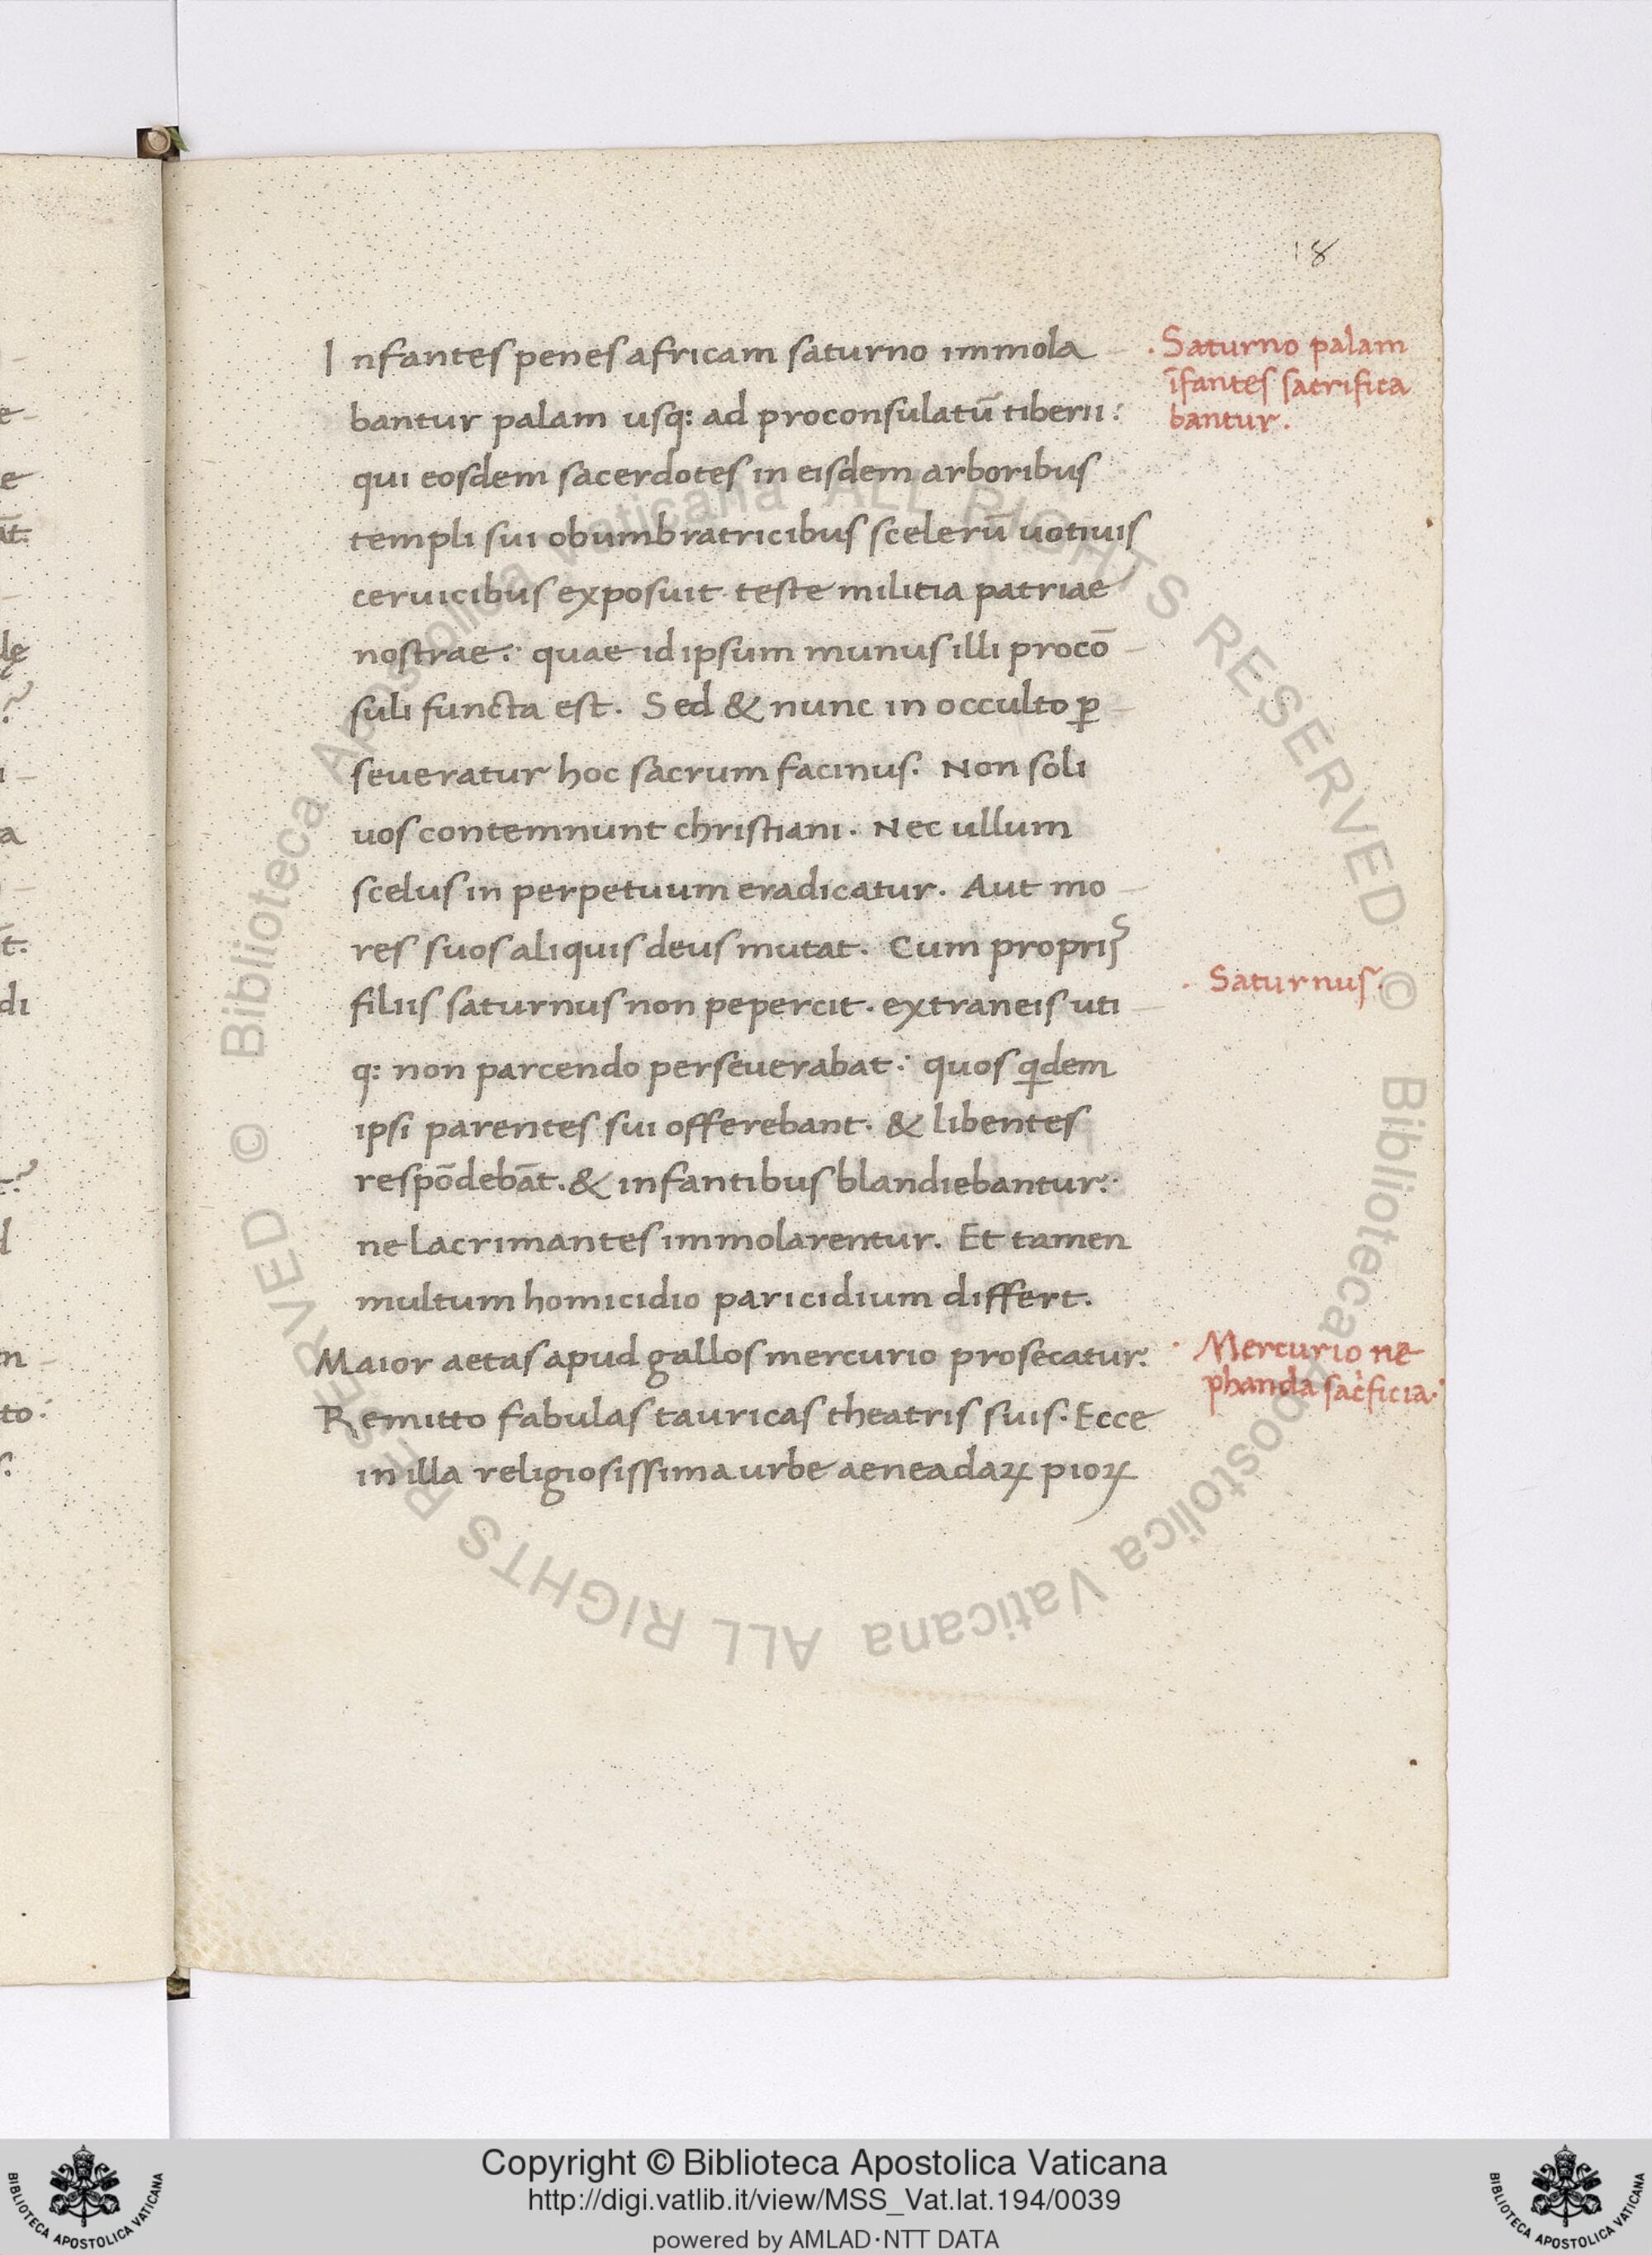 18
Infantes penes africam saturno immola
bantur palam usq: ad proconsulatū tiberii:
qui eosdem sacerdotes in eisdem arboribus
templi sui obumbratricibus scelerū uotiuis
ceruicibus exposuit teste militia patriae
nostrae: quae id ipsum munus illi procō
suli functa est. Sed & nunc in occulto ꝑ
seueratur hoc sacrum facinus. Non soli
uos contemnunt christiani. Nec ullum
scelus in perpetuum eradicatur. Aut mo
res suos aliquis deus mutat. Cum proprijs
filiis saturnus non pepercit. extraneis uti
q: non parcendo perseuerabat: quos qdem
ipsi parentes sui offerebant. & libentes
respōdebāt. & infantibus blandiebantur:
ne lacrimantes immolarentur. Et tamen
multum homicidio paricidium differt.
Maior aetas apud gallos mercurio prosecatur.
Remitto fabulas tauricas theatris suis. Ecce
in illa religiosissima urbe aeneadaꝝ pioꝝ
. Saturno palam
īfantes sacrifica
bantur.
. Saturnus.
. Mercurio ne
phanda sacficia.
Copyright © Biblioteca Apostolica Vaticana
http://digi.vatlib.it/view/MSS_Vat.lat.194/0039
powered by AMLAD·NTT DATA
BIBLIOTECA APOSTOLICA VATICANA
BIBLIOTECA APOSTOLICA VATICANA
© Biblioteca Apostolica Vaticana ALL RIGHTS RESERVED
© Biblioteca Apostolica Vaticana ALL RIGHTS RESERVED